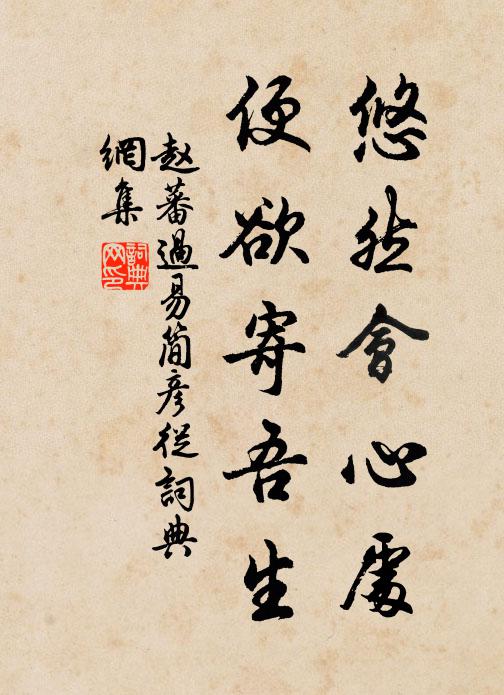 悠然會心處
便欲寄吾生
赵蕃過易簡彦從詞典
網集
詞典
网印